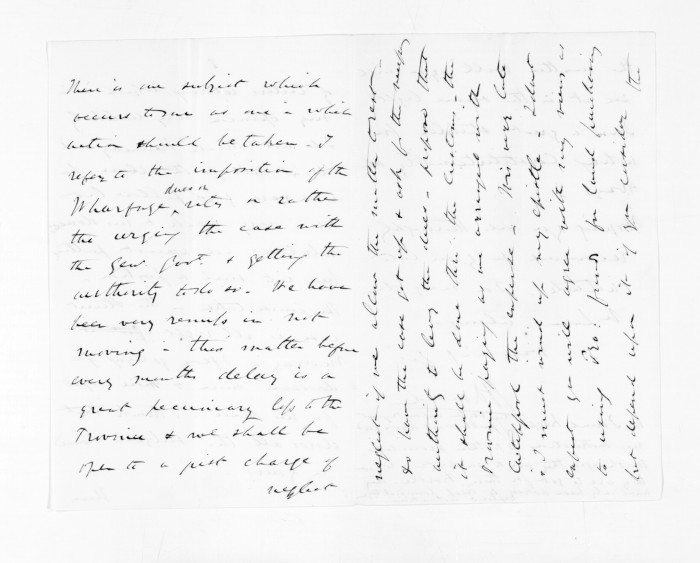 There is one subject which
occurs to me as one in which
action should be taken - I
refer to the imposition of the
dues or
Wharfage rates or rather
the urging the case with
the Genl Govt. & getting the
authority to do so. We have
been very remiss in not
moving in this matter before
every months delay is a
great pecuniary loss to the
Province & we shall be
open to a just charge of
neglect
neglect if we allow the matter to rest -
to have the case got up & ask for the necessary
authority to levy the dues - suppose that
it shall be done thro' the Customs - the
Province paying as we arranged with
the expense - It is very late
& I must wind up my epistle - I don't
expect you will agree with my views as
to using Pro: funds for land purchasing
but depend upon it if you consider the